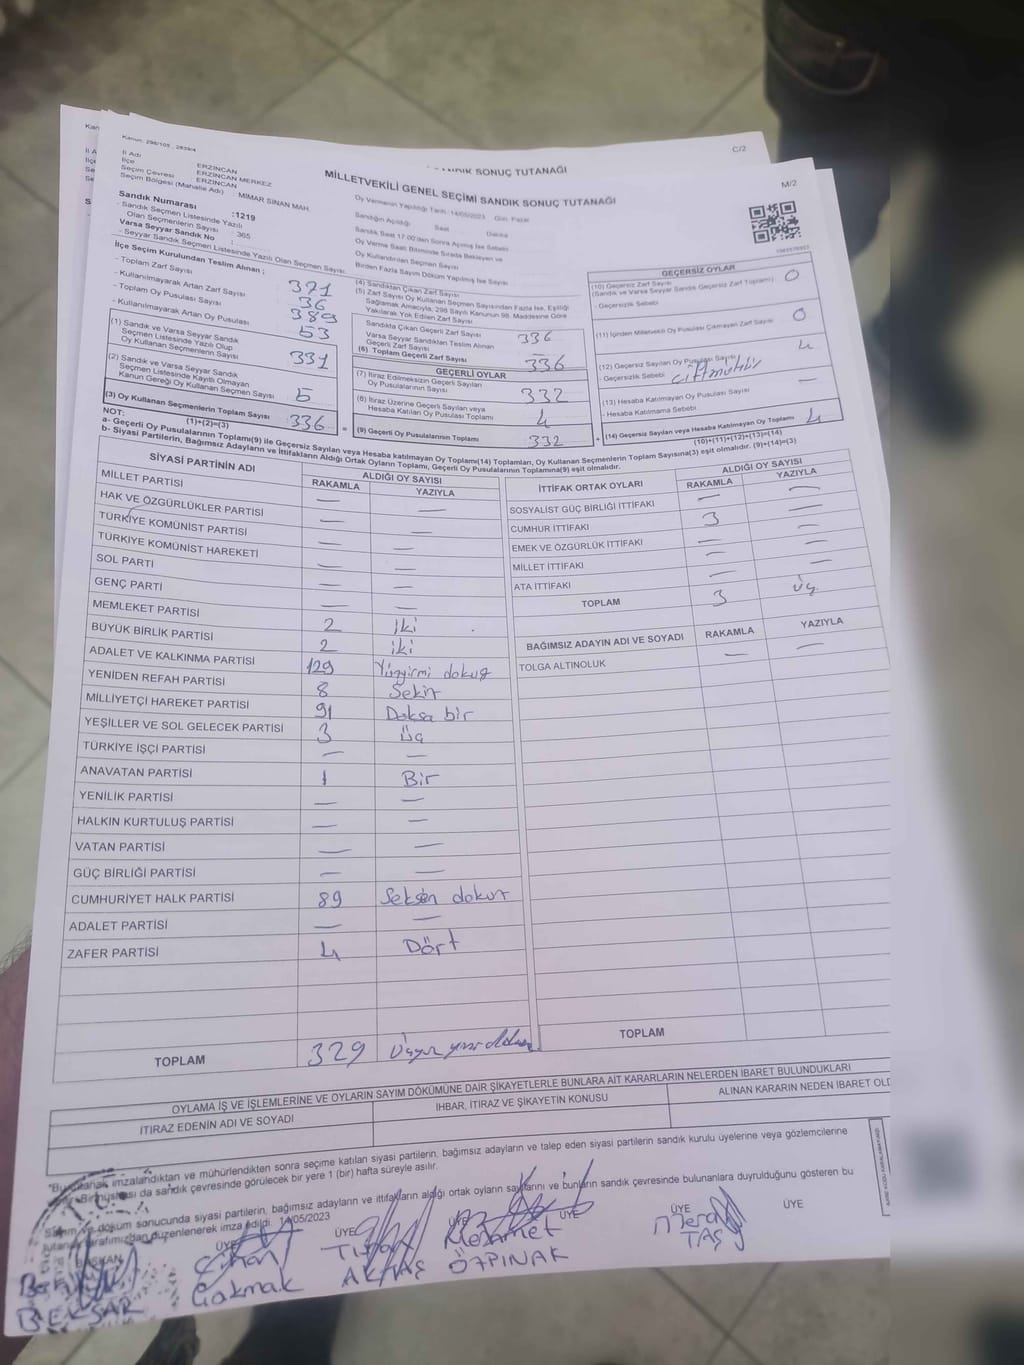 Kanun: 298/105 , 2839/4
C/2
SANDIK SONUÇ TUTANAĞI
M/2
MİLLETVEKİLİ GENEL SEÇİMİ SANDIK SONUÇ TUTANAĞI
İl Adı : ERZİNCAN
İlçe : ERZİNCAN MERKEZ
Seçim Çevresi : ERZİNCAN
Seçim Bölgesi (Mahalle Adı) : MİMAR SİNAN MAH.
Sandık Numarası :1219
- Sandık Seçmen Listesinde Yazılı
Olan Seçmenlerin Sayısı : 365
Varsa Seyyar Sandık No :
- Seyyar Sandık Seçmen Listesinde Yazılı Olan Seçmen Sayısı:
Oy Vermenin Yapıldığı Tarih :14/05/2023 Gün: Pazar
Sandığın Açıldığı: Saat Dakika
Sandık Saat 17:00'den Sonra Açılmış İse Sebebi
Oy Verme Saati Bitiminde Sırada Bekleyen ve
Oy Kullandırılan Seçmen Sayısı
Birden Fazla Sayım Döküm Yapılmış İse Sayısı
İlçe Seçim Kurulundan Teslim Alınan ;
- Toplam Zarf Sayısı 371
- Kullanılmayarak Artan Zarf Sayısı 36
- Toplam Oy Pusulası Sayısı 389
- Kullanılmayarak Artan Oy Pusulası 53
(1) Sandık ve Varsa Seyyar Sandık
Seçmen Listesinde Yazılı Olup
Oy Kullanan Seçmenlerin Sayısı 331
(2) Sandık ve Varsa Seyyar Sandık
Seçmen Listesinde Kayıtlı Olmayan
Kanun Gereği Oy Kullanan Seçmen Sayısı 5
(3) Oy Kullanan Seçmenlerin Toplam Sayısı
(1)+(2)=(3) 336
(4) Sandıktan Çıkan Zarf Sayısı
(5) Zarf Sayısı Oy Kullanan Seçmen Sayısından Fazla İse, Eşitliği
Sağlamak Amacıyla; 298 Sayılı Kanunun 98. Maddesine Göre
Yakılarak Yok Edilen Zarf Sayısı
Sandıkta Çıkan Geçerli Zarf Sayısı 336
Varsa Seyyar Sandıktan Teslim Alınan
Geçerli Zarf Sayısı
(6) Toplam Geçerli Zarf Sayısı 336
GEÇERLİ OYLAR
(7) İtiraz Edilmeksizin Geçerli Sayılan
Oy Pusulalarının Sayısı 332
(8) İtiraz Üzerine Geçerli Sayılan veya
Hesaba Katılan Oy Pusulası Toplamı 4
(9) Geçerli Oy Pusulalarının Toplamı 332
GEÇERSİZ OYLAR
(10) Geçersiz Zarf Sayısı
(Sandık ve Varsa Seyyar Sandık Geçersiz Zarf Toplamı) 0
- Geçersizlik Sebebi
(11) İçinden Milletvekili Oy Pusulası Çıkmayan Zarf Sayısı 0
(12) Geçersiz Sayılan Oy Pusulası Sayısı 4
Geçersizlik Sebebi
(13) Hesaba Katılmayan Oy Pusulası Sayısı —
- Hesaba Katılmama Sebebi
(14) Geçersiz Sayılan veya Hesaba Katılmayan Oy Toplamı 4
(10)+(11)+(12)+(13)=(14)
NOT:
a- Geçerli Oy Pusulalarının Toplamı(9) ile Geçersiz Sayılan veya Hesaba katılmayan Oy Toplamı(14) Toplamları, Oy Kullanan Seçmenlerin Toplam Sayısına(3) eşit olmalıdır. (9)+(14)=(3)
b- Siyasi Partilerin, Bağımsız Adayların ve İttifakların Aldığı Ortak Oyların Toplamı, Geçerli Oy Pusulalarının Toplamına(9) eşit olmalıdır.
SİYASİ PARTİNİN ADI ALDIĞI OY SAYISI
RAKAMLA YAZIYLA
MİLLET PARTİSİ — —
HAK VE ÖZGÜRLÜKLER PARTİSİ — —
TÜRKİYE KOMÜNİST PARTİSİ — —
TÜRKİYE KOMÜNİST HAREKETİ — —
SOL PARTİ — —
GENÇ PARTİ — —
MEMLEKET PARTİSİ 2 iki
BÜYÜK BİRLİK PARTİSİ 2 iki
ADALET VE KALKINMA PARTİSİ 129 Yüzyirmi dokuz
YENİDEN REFAH PARTİSİ 8 Sekiz
MİLLİYETÇİ HAREKET PARTİSİ 91 Doksa bir
YEŞİLLER VE SOL GELECEK PARTİSİ 3 Üç
TÜRKİYE İŞÇİ PARTİSİ — —
ANAVATAN PARTİSİ 1 Bir
YENİLİK PARTİSİ — —
HALKIN KURTULUŞ PARTİSİ — —
VATAN PARTİSİ — —
GÜÇ BİRLİĞİ PARTİSİ — —
CUMHURİYET HALK PARTİSİ 89 Seksen dokuz
ADALET PARTİSİ — —
ZAFER PARTİSİ 4 Dört
TOPLAM 329
İTTİFAK ORTAK OYLARI ALDIĞI OY SAYISI
RAKAMLA YAZIYLA
SOSYALİST GÜÇ BİRLİĞİ İTTİFAKI — —
CUMHUR İTTİFAKI 3 —
EMEK VE ÖZGÜRLÜK İTTİFAKI — —
MİLLET İTTİFAKI — —
ATA İTTİFAKI — —
TOPLAM 3 üç
BAĞIMSIZ ADAYIN ADI VE SOYADI RAKAMLA YAZIYLA
TOLGA ALTINOLUK — —
TOPLAM
OYLAMA İŞ VE İŞLEMLERİNE VE OYLARIN SAYIM DÖKÜMÜNE DAİR ŞİKAYETLERLE BUNLARA AİT KARARLARIN NELERDEN İBARET BULUNDUKLARI
İTİRAZ EDENİN ADI VE SOYADI İHBAR, İTİRAZ VE ŞİKAYETİN KONUSU ALINAN KARARIN NEDEN İBARET OLD
imzalandıktan ve mühürlendikten sonra seçime katılan siyasi partilerin, bağımsız adayların ve talep eden siyasi partilerin sandık kurulu üyelerine veya gözlemcilerine
da sandık çevresinde görülecek bir yere 1 (bir) hafta süreyle asılır.
ve döküm sonucunda siyasi partilerin, bağımsız adayların ve ittifakların aldığı ortak oyların sayılarını ve bunların sandık çevresinde bulunanlara duyrulduğunu gösteren bu
tutanak tarafımızdan düzenlenerek imza edildi. 14/05/2023
BAŞKAN ÜYE ÜYE ÜYE ÜYE ÜYE ÜYE
BEKSAR
Cihan
Gakmak
AKTAŞ
Mehmet
ÖZPINAK
Meral
TAŞ